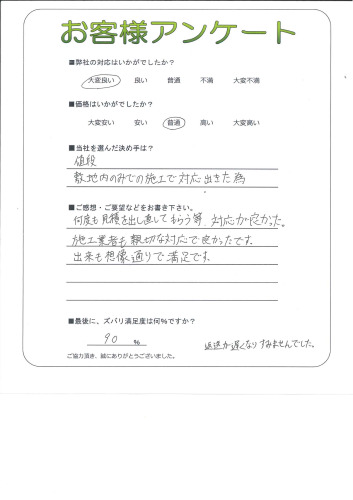 お客様アンケート
■弊社の対応はいかがでしたか?
大変良い 良い 普通 不満 大変不満
■価格はいかがでしたか?
大変安い 安い 普通 高い 大変高い
■当社を選んだ決め手は?
値段
敷地内のみでの施工で対応出きた為
■ご感想・ご要望などをお書き下さい。
何度も見積を出し直してもらう等、対応が良かった。
施工業者も親切な対応で良かったです。
出来も想像通りで満足です。
■最後に、ズバリ満足度は何%ですか?
90 %
返送が遅くなりすみませんでした。
ご協力頂き、誠にありがとうございました。